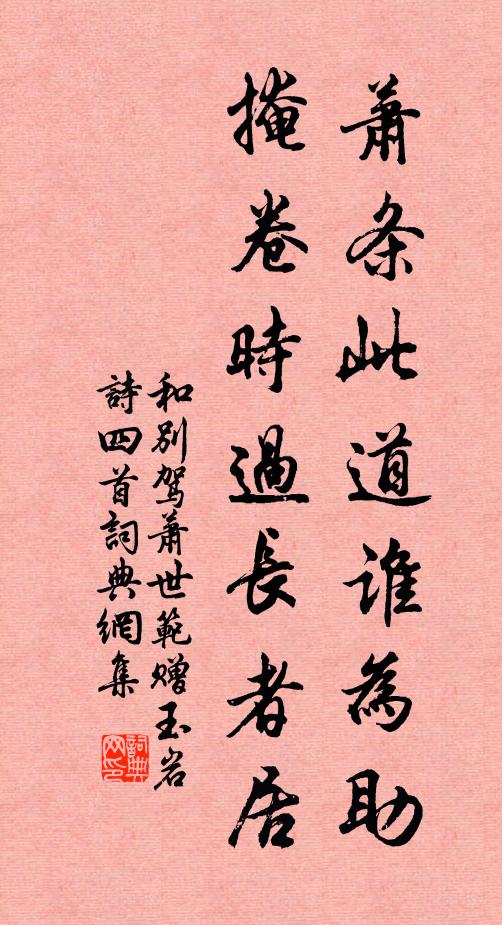 蕭条此道誰為助
掩卷時過長者居
和別駕蕭世範贈玉岩
詩四首詞典網集
詞典
网印